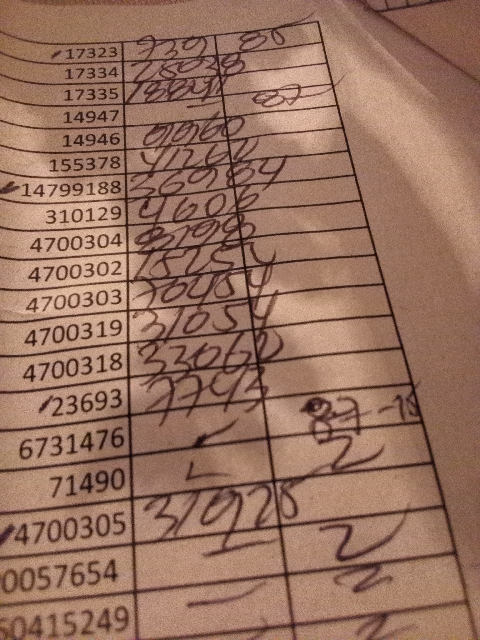 17323 939 85
17334
17335 87
14947 —
14946 91960
155378 41262
14799188 369184
310129 4606
4700304
4700302 15254
4700303 70454
4700319 31054
4700318 33060
23693 7743
6731476 87 -15
71490 2
4700305 310928
0057654 — 2
60415249 — 2